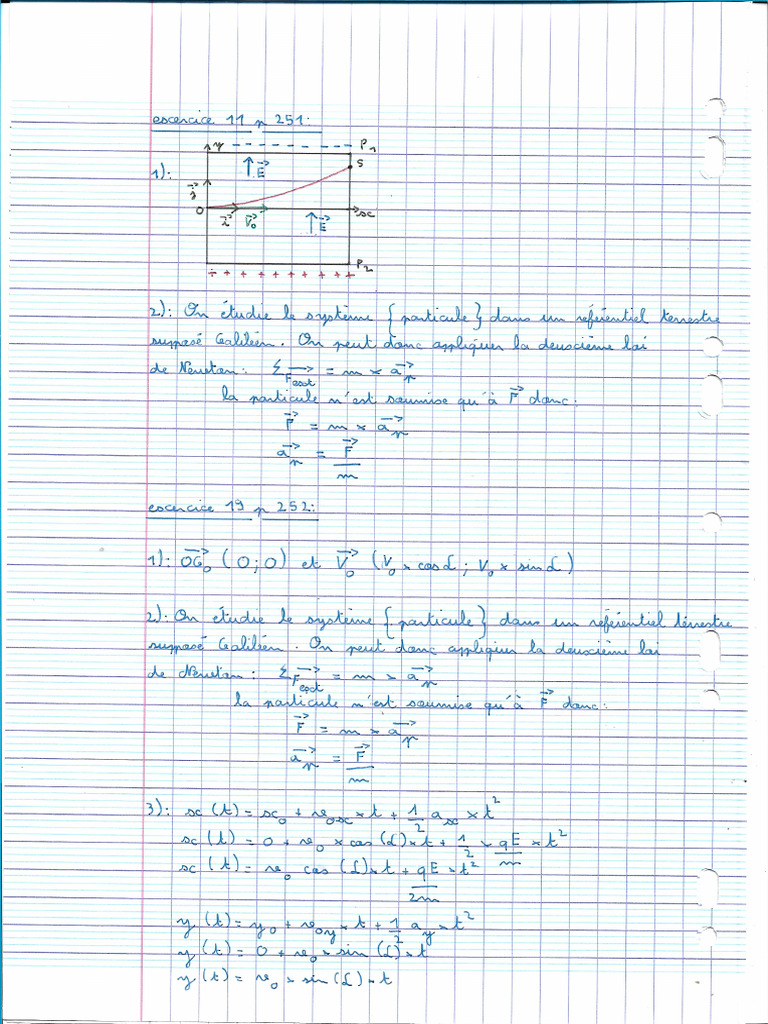 exercice 11 p 251:
1):
y
- - - - - - P₁
S
E⃗
j⃗
O
i⃗ V₀⃗ E⃗ x
P₂
+ + + + + + + + + +
2): On étudie le système {particule} dans un référentiel terrestre
supposé Galiléen. On peut donc appliquer la deuxième loi
de Newton: ΣF⃗ext = m × a⃗p
la particule n'est soumise qu'à F⃗ donc:
F⃗ = m × a⃗p
a⃗p = F⃗/m
exercice 19 p 252:
1): OG₀⃗ (0;0) et V₀⃗ (V₀ × cosα ; V₀ × sinα)
2): On étudie le système {particule} dans un référentiel terrestre
supposé Galiléen. On peut donc appliquer la deuxième loi
de Newton: ΣF⃗ext = m × a⃗p
la particule n'est soumise qu'à F⃗ donc:
F⃗ = m × a⃗p
a⃗p = F⃗/m
3): x(t) = x₀ + v₀ₓ × t + 1/2 aₓ × t²
x(t) = 0 + v₀ × cos(α) × t + 1/2 × qE/m × t²
x(t) = v₀ cos(α) × t + qE/2m × t²
y(t) = y₀ + v₀y × t + 1/2 ay × t²
y(t) = 0 + v₀ × sin(α) × t
y(t) = v₀ × sin(α) × t